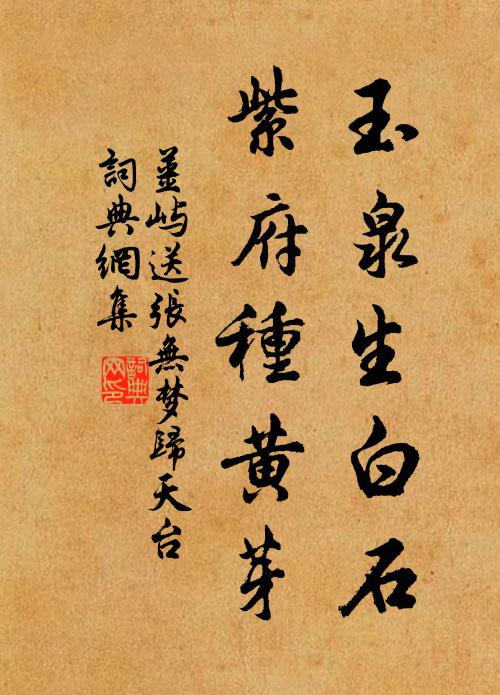 玉泉生白石
紫府種黃芽
薑屿送張無梦歸天台
詞典網集
詞典网印